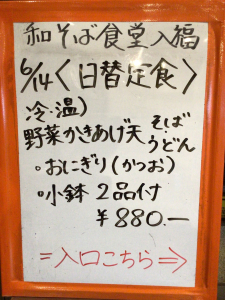 和そば食堂入福
6/14〈日替定食〉
冷・温)
野菜かきあげ天 そば
うどん
・おにぎり(かつお)
・小鉢 2品付
¥880.—
=入口こちら⇒